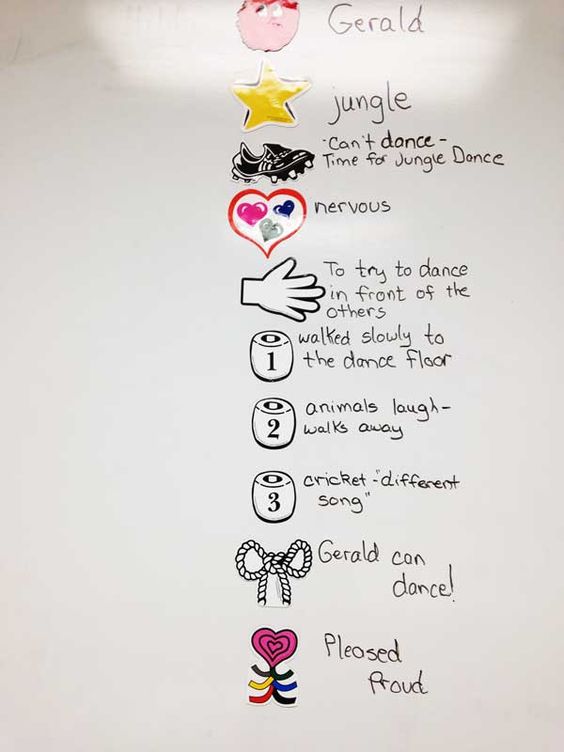 Gerald
jungle
- Can't dance -
Time for Jungle Dance
nervous
To try to dance
in front of the
others
1
walked slowly to
the dance floor
2
animals laugh-
walks away
3
cricket - "different
song"
Gerald can
dance!
Pleased
Proud